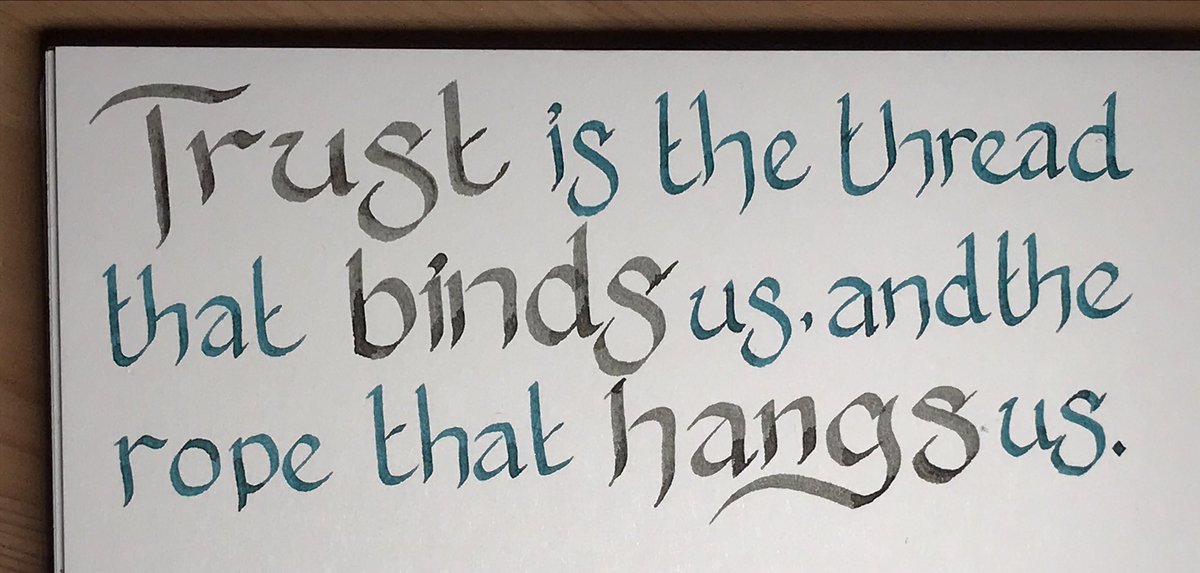 Trust is the thread
that binds us, and the
rope that hangs us.